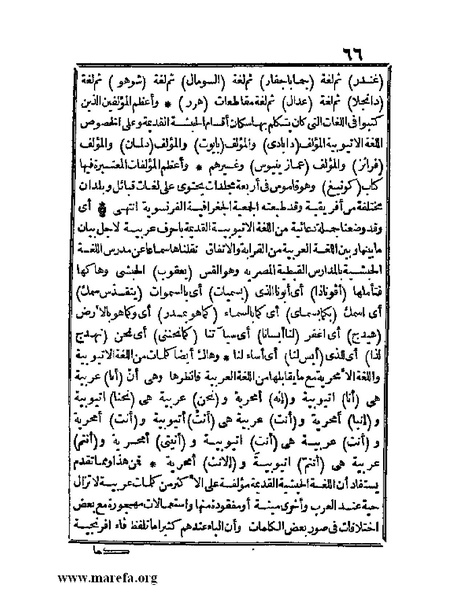 ٦٦
(غندر) ثم لغة (جماباجفار) ثم لغة (السومال) ثم لغة (شوهو) ثم لغة
(دانجلا) ثم لغة (عدال) ثم لغة مقاطعات (هرر) * وأعظم المؤلفين الذين
كتبوا فى اللغات التى كان يتكلم بها سكان أقسام الحبشة القديمة وعلى الخصوص
اللغة الاتيوبية المؤلف (دابادى) والمؤلف (بابوت) والمؤلف (دلمان) والمؤلف
(فرانز) والمؤلف (عمانيوس) وغيرهم * وأعظم المؤلفات المعتبرة فيها
كتاب (كونيغ) وهو قاموس فى أربعة مجلدات يحتوى على لغات قبائل وبلدان
مختلفة من أفريقية وقد طبعته الجمعية الجغرافية الفرنسوية انتهى * أى
وقد وضعنا جملة دعائية من اللغة الاتيوبية القديمة باحرف عربية لاجل بيان
ما بينها وبين اللغة العربية من القرابة والاتفاق نقلناها سماعا عن مدرس اللغة
الحبشية بالمدارس القبطية المصرية وهو القس (يعقوب) الحبشى وها كها
فتأملها (أقونا ذا) أى أبونا الذى (بسميات) أى بالسموات (يتقدس سمك)
أى اسمك (بكما بسماى) أى كما بالسماء (كماهو بمدر) أى وكما هو بالارض
(هيدج) أى اغفر (لنا أبسانا) أى سيآتنا (كما نحنى) أى نحن (نهدج
لذا) أى للذى (أبس لنا) أى أساء لنا * وهاك أيضا كلمات من اللغة الاتيوبية
واللغة الأمحرية مع ما يقابلها من اللغة العربية فانظرها وهى أن (أنا) عربية
هى (أنا) اتيوبية و (إنه) أمحرية و (نحن) عربية هى (نحنا) اتيوبية
و (انيا) أمحرية و (أنت) عربية هى (أنت) أتيوبية و (أنت) أمحرية
و (أنت) عربية هى (أنت) اتيوبية و (أنيتى) أمحرية و (أنتم)
عربية هى (أنتم) اتيوبية و (الانت) أمحرية * فمن هذا ومما تقدم
يستفاد أن اللغة الحبشية القديمة مؤلفة على الأكثر من كلمات عربية لا تزال
حية عند العرب وأخرى ميتة أو مفقودة منها واستعمالات مهجورة مع بعض
اختلافات فى صور بعض الكلمات وأن الباء عندهم كثيرا ما تلفظ فاء افرنجية
كما
www.marefa.org